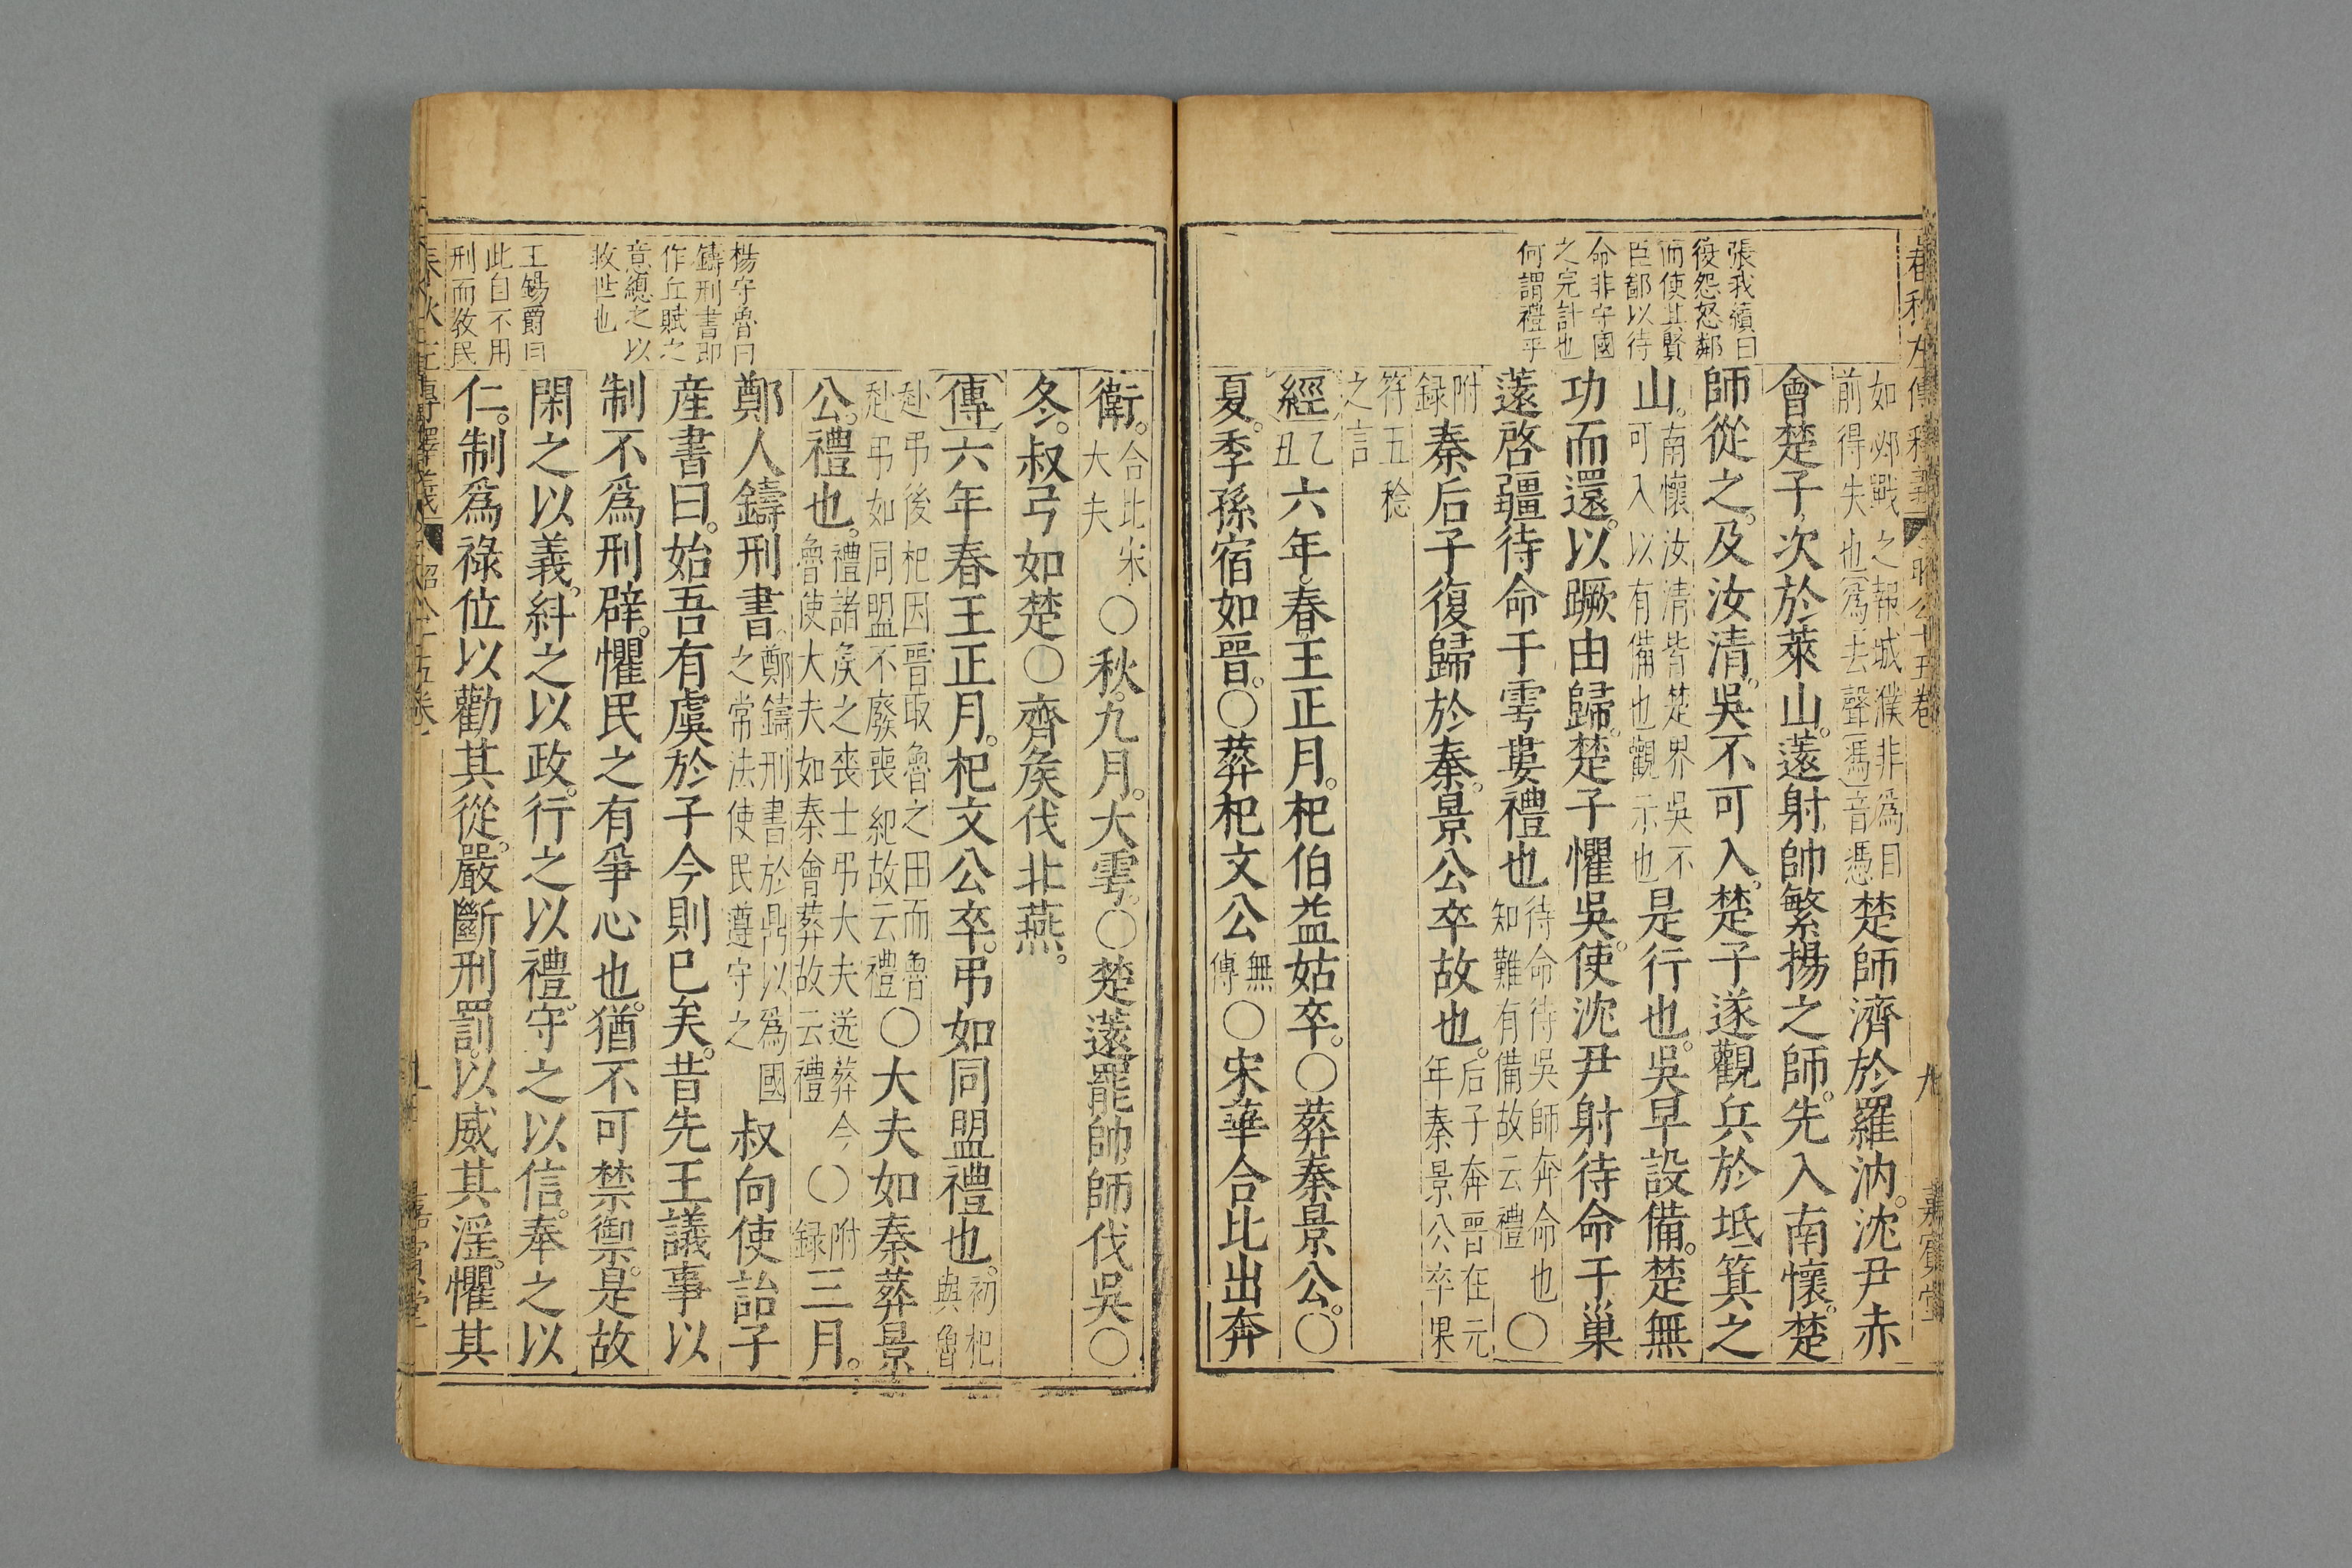 張我續曰
役怨怒鄰
而使其賢
臣鄙以待
命非守國
之完計也
何謂禮乎
如邲戰之報城濮非為目
前得失也〔為去聲〕〔馮〕音憑
楚師濟於羅汭。沈尹赤
會楚子次於萊山。薳射帥繁揚之師。先入南懷。楚
師從之。及汝清。吳不可入。楚子遂觀兵於坻箕之
山。
南懷汝清皆楚界吳不
可入以有備也觀示也
是行也。吳早設備。楚無
功而還。以蹶由歸。楚子懼吳。使沈尹射待命于巢
薳啓疆待命于雩婁禮也
待命待吳師奔命也
知難有備故云禮
〇
附
録
秦后子復歸於秦。景公卒故也。
后子奔晉在元
年秦景公卒果
符五稔
之言
〔經〕
乙
丑
六年。春王正月。杞伯益姑卒。〇葬秦景公。〇
夏。季孫宿如晉。〇葬杞文公
無
傳
〇宋華合比出奔
衛。
合比宋
大夫
〇秋。九月。大雩。〇楚薳罷帥師伐吳〇
冬。叔弓如楚〇齊矦伐北燕。
〔傳〕六年春王正月。杞文公卒。弔如同盟禮也。
初杞
與魯
赴弔後杞因晉取魯之田而魯
赴弔如同盟不廢喪紀故云禮
〇大夫如秦葬景
公。禮也。
禮諸矦之喪士弔大夫送葬今
魯使大夫如秦會葬故云禮
〇
附
録
三月。
鄭人鑄刑書。
鄭鑄刑書於鼎以爲國
之常法使民遵守之
叔向使詒子
産書曰。始吾有虞於子今則已矣。昔先王議事以
制不爲刑辟。懼民之有爭心也。猶不可禁禦。是故
閑之以義。糾之以政。行之以禮。守之以信。奉之以
仁。制爲祿位以勸其從。嚴斷刑罰。以威其淫。懼其
楊守魯曰
鑄刑書即
作丘賦之
意總之以
救世也
王錫爵曰
此自不用
刑而教民